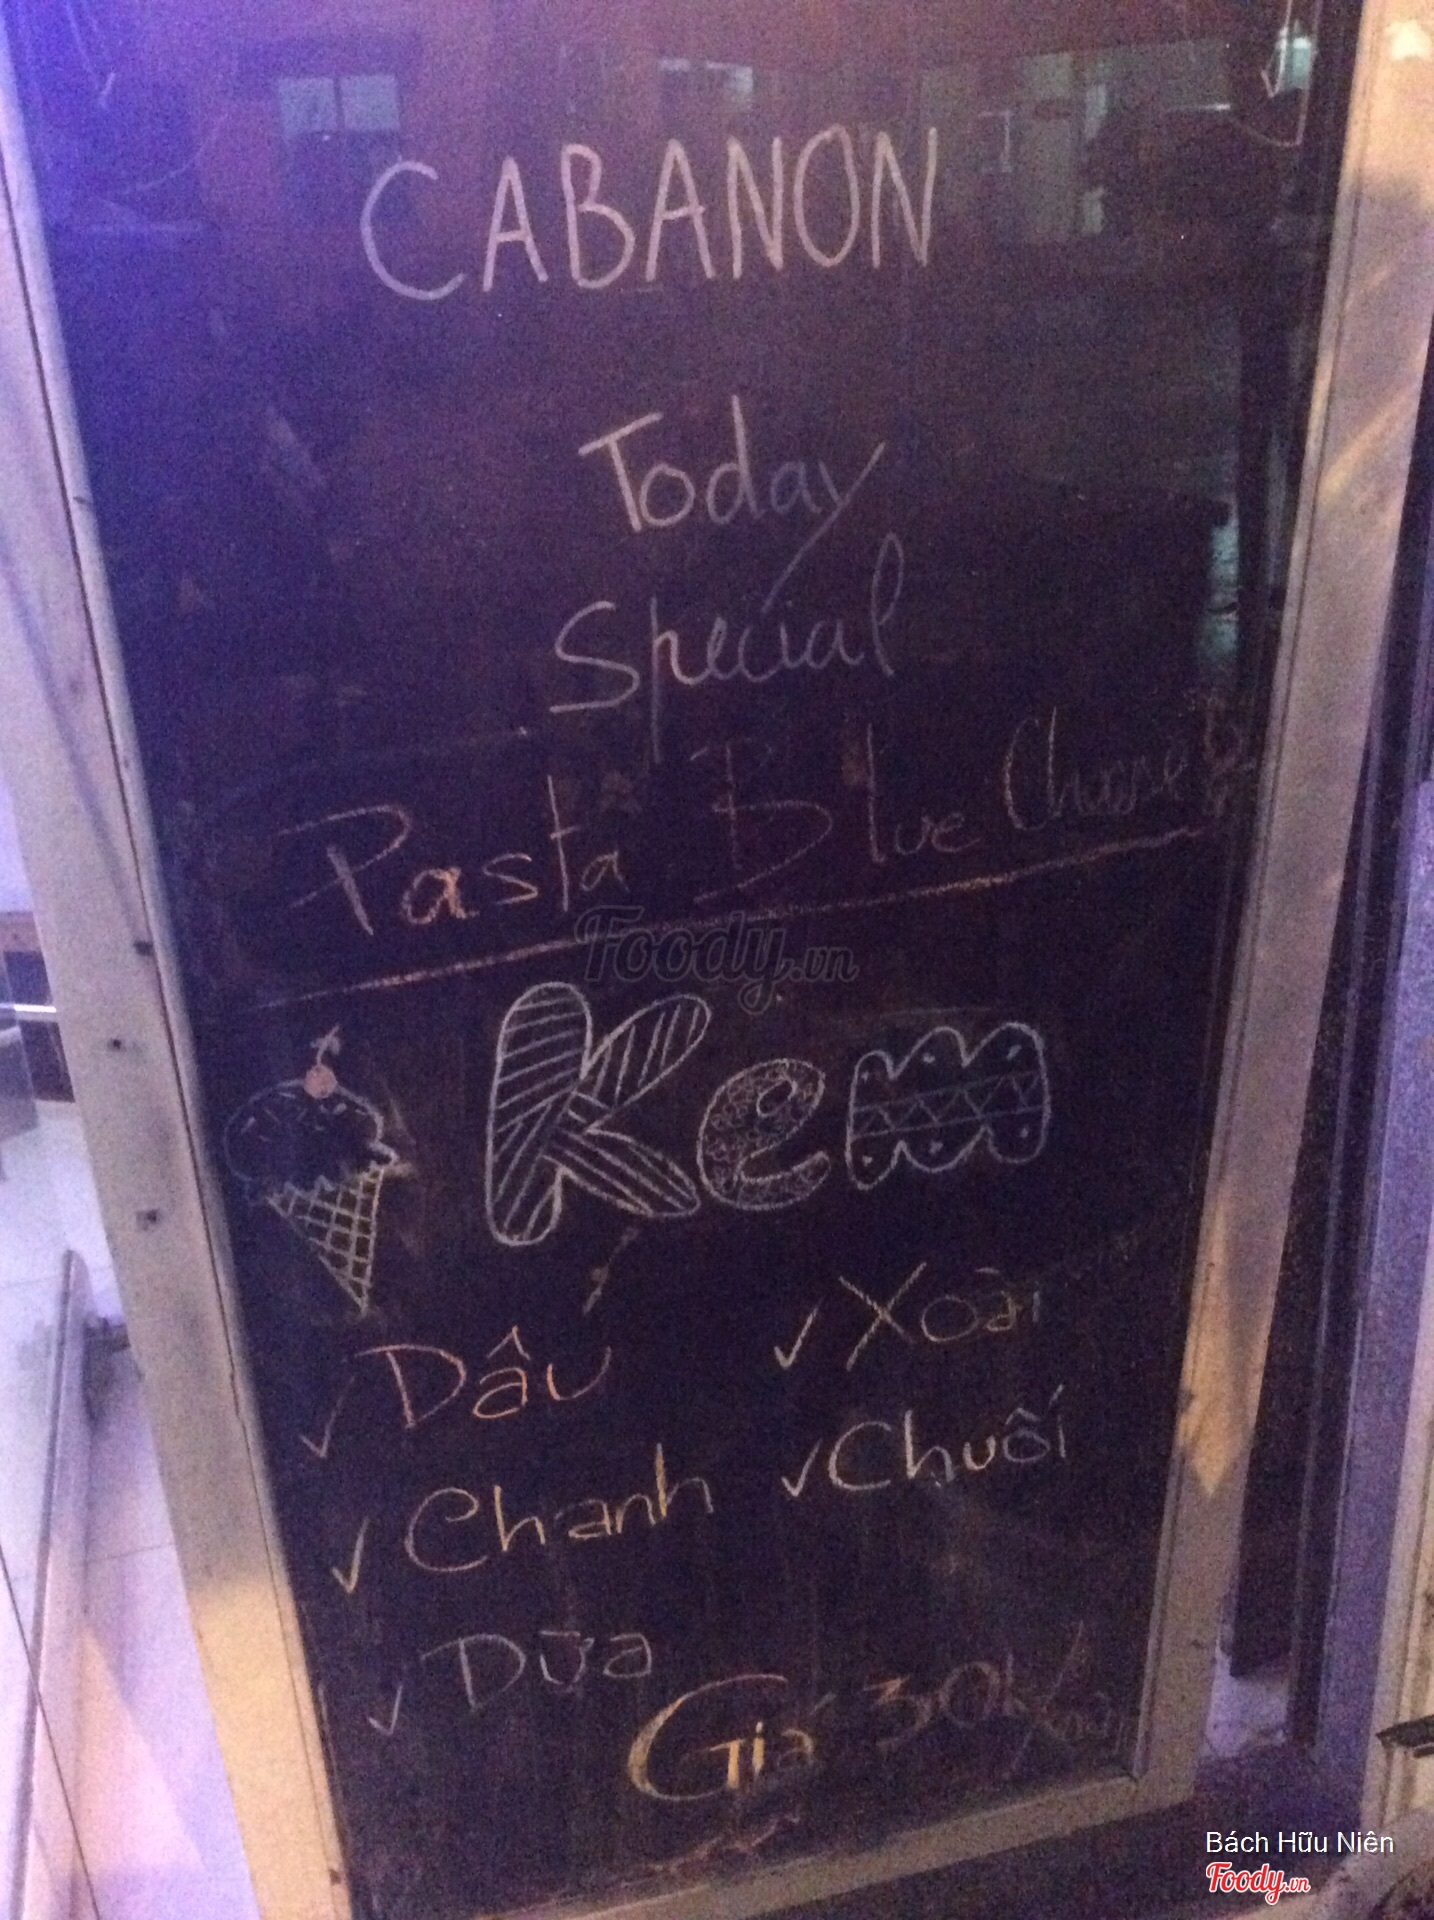 CABANON
Today
Special
Pasta Blue
Foody.vn
Kem
✓ Dâu ✓ Xoài
✓ Chanh ✓ Chuối
✓ Dừa
Giá 30k/
Bách Hữu Niên
Foody.vn